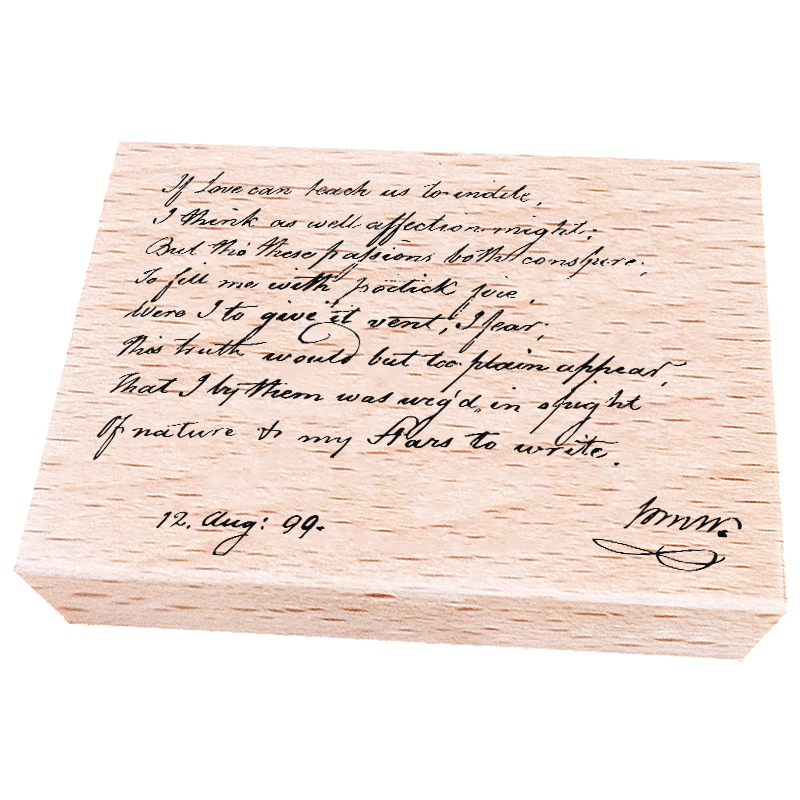 If Love can teach us to indite,
I think as well affection might;
But tho' these passions both conspire,
To fill me with poetick fire,
Were I to give it vent, I fear,
this truth would but too plain appear,
That I by them was urg'd, in spight
Of nature & my Stars to write.
12. Aug: 99.